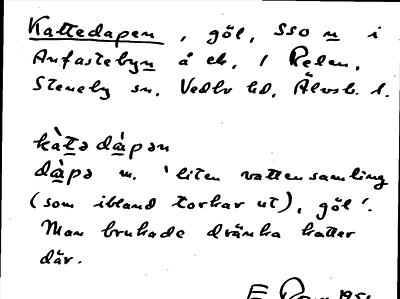 Kattedapen, göl, SSO n i
Anfastebyn å ek. 1 Relen,
Steneby sn. Vedbo hd, Älvsb. l.
kàtə dàpən
dàpə m. 'liten vattensamling
(som ibland torkar ut), göl'.
Man brukade dränka katter
där.